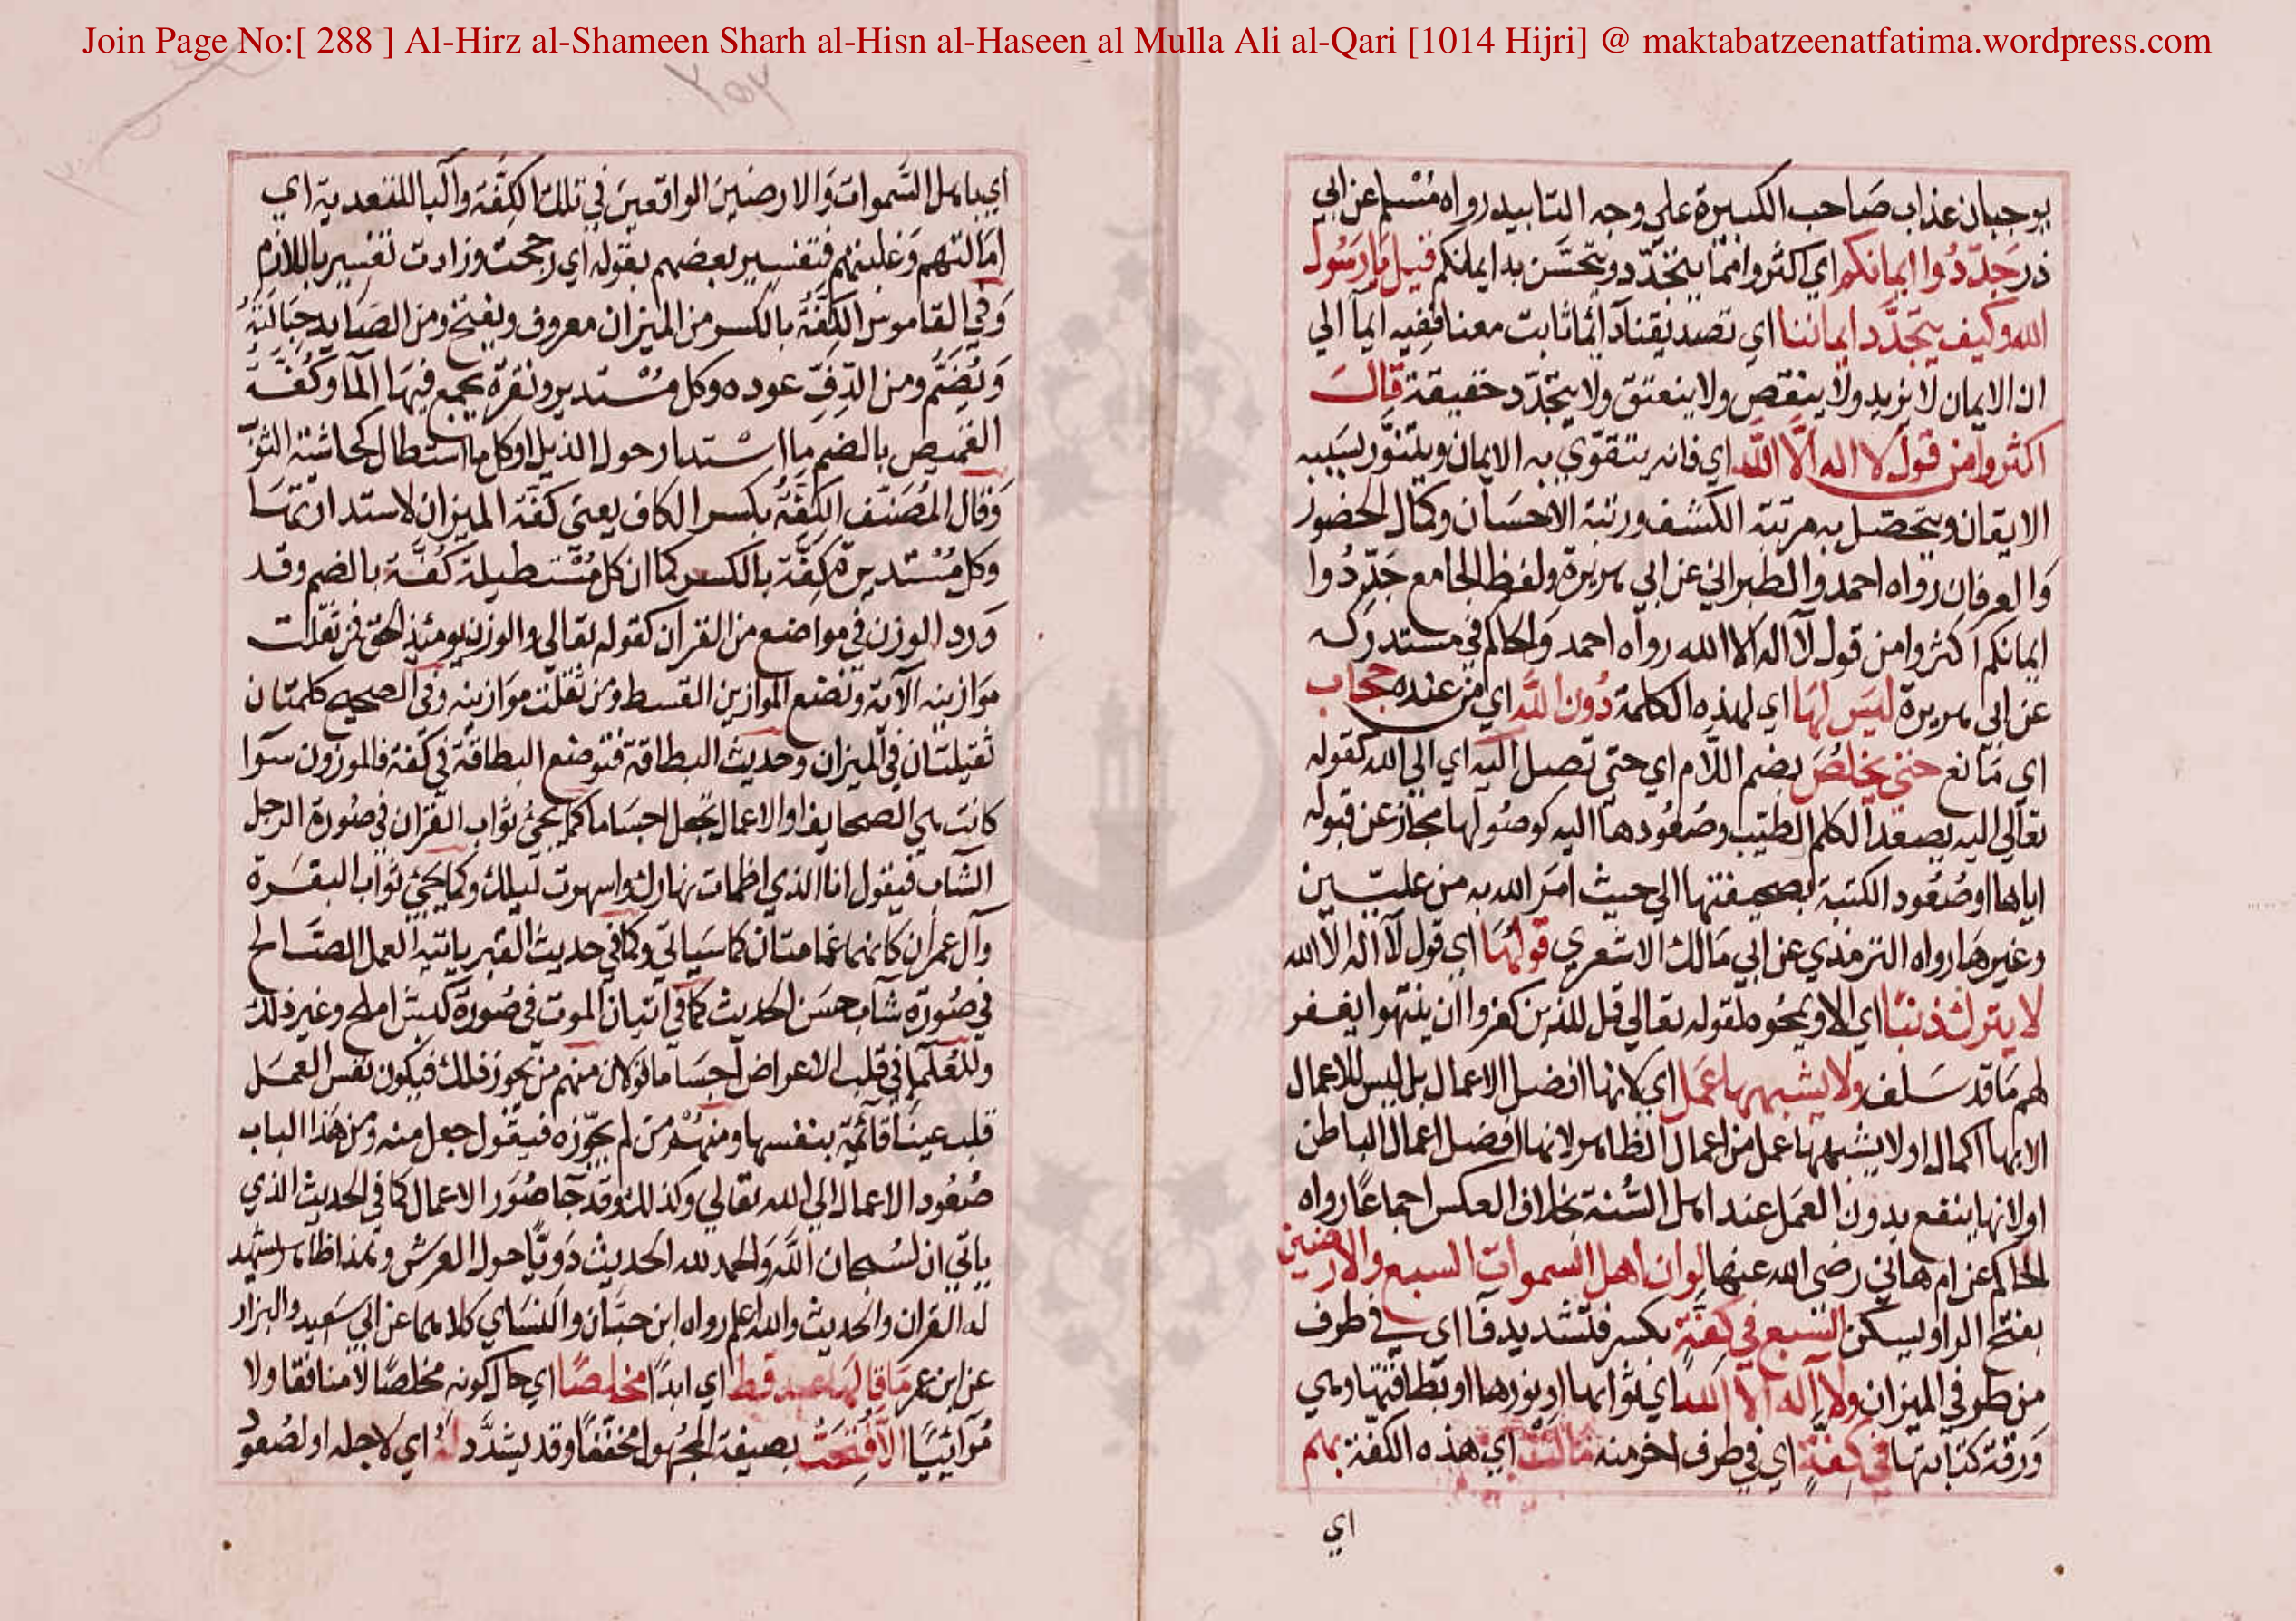 Join Page No:[ 288 ] Al-Hirz al-Shameen Sharh al-Hisn al-Haseen al Mulla Ali al-Qari [1014 Hijri] @ maktabatzeenatfatima.wordpress.com
يوجبان عذاب صاحب الكبيرة علي وجه التابيد رواه مسلم عن ابي
ذر جددوا ايمانكم اي اكثروا مما يتجدد ويتحسن به ايمانكم قيل يا رسول
الله وكيف يتجدد ايماننا اي تصديقنا دائما ثابت معنا ففيه ايما الي
ان الايمان لا يزيد ولا ينقص ولا يتعتق ولا يتجدد حقيقة قال
اكثروا من قول لا اله الا الله اي فانه يتقوي به الايمان ويتنور بسببه
الايقان ويتحصل به مرتبة الكشف ورتبة الاحسان وكمال الحضور
والعرفان رواه احمد والطبراني عن ابي هريرة ولفظ الجامع جددوا
ايمانكم اكثروا من قول لا اله الا الله رواه احمد والحاكم في مستدركه
عن ابي هريرة ليس لها اي لهذه الكلمة دون الله اي من عنده حجاب
اي مانع حتي يخلص بضم اللام اي حتي تصل اليه اي الي الله كقوله
تعالي اليه يصعد الكلم الطيب وصعودها اليه كوصولها مجاز عن قبوله
اياها او صعود الكتبة بصحيفتها الي حيث امر الله به من عليين
وغيرها رواه الترمذي عن ابي مالك الاشعري قولها اي قول لا اله الا الله
لا يترك ذنبا اي الا ويمحوه لقوله تعالي قل للذين كفروا ان ينتهوا يغفر
لهم ما قد سلف ولا يشبهها عمل اي لانها افضل الاعمال بل ليس للاعمال
الا بها اكمال او لا يشبهها عمل من اعمال الظاهر لانها افضل اعمال الباطن
او لانها ينفع بدون العمل عند اهل السنة بخلاف العكس اجماعا رواه
الحاكم عن ام هاني رضي الله عنها لو ان اهل السموات السبع والارضين
بفتح الراو ليسكن السبع في كفة بكسر فتشديد فا اي في طرف
من طرفي الميزان ولا اله الا الله اي ثوابها او نورها او بطاقتها وهي
ورقة كتابتها في كفة اي في طرف اخر منه مالت اي هذه الكفة بهم
اي
اي باهل السموات والارضين الواقعين في تلك الكفة والبا للتعدية اي
امالتهم وغلبتهم فتفسير بعضهم بقوله اي رجحت وزادت تفسير باللازم
وفي القاموس الكفة بالكسر من الميزان معروف ويفتح ومن الصايد حبالته
ويضم ومن الدف عوده وكل مستدير ونقرة يجمع فيها الما وكفة
القميص بالضم ما استدار حول الذيل او كل ما استطال كحاشية الثوب
وقال المصنف الكفة بكسر الكاف يعني كفة الميزان لاستدارتها
وكل مستديرة كفة بالكسر كما ان كل مستطيلة كفة بالضم وقد
ورد الوزن في مواضع من القران كقوله تعالي والوزن يومئذ الحق فمن ثقلت
موازينه الآية ونضع الموازين القسط ومن ثقلت موازينه وفي الصحيح كلمتان
ثقيلتان في الميزان وحديث البطاقة فتوضع البطاقة في كفة فالموزون سوا
كانت هي الصحايف او الاعمال يجعل اجساما كما يجئ ثواب القران في صورة الرجل
الشاب فيقول انا الذي اظمات نهارك واسهرت ليلك وكما يجئ ثواب البقرة
وآل عمران كانهما غمامتان كما سياتي وكما في حديث القبر ياتيه العمل الصالح
في صورة شاب حسن الحديث كما في اتيان الموت في صورة كبش املح وغير ذلك
وللعلما في قلب الاعراض اجساما قولان منهم من يجوز ذلك فيكون نفس العمل
قلب عينا قائمة بنفسها ومنهم من لم يجوزه فيقول جعل منه ومن هذا الباب
صعود الاعمال الي الله تعالي وكذلك وقد جا صور الاعمال كما في الحديث الذي
ياتي ان لسبحان الله والحمد لله الحديث دويا حول العرش وهذا ظاهر يشهد
له القران والحديث والله اعلم رواه ابن حبان والنساي كلاهما عن ابي سعيد والبزار
عن ابن عمر ما قالها عبد قط اي ابدا مخلصا اي حال كونه مخلصا لا منافقا ولا
مرائييا الا فتحت بصيغة المجهول مخففا وقد يشدد له اي لاجله او لصعود